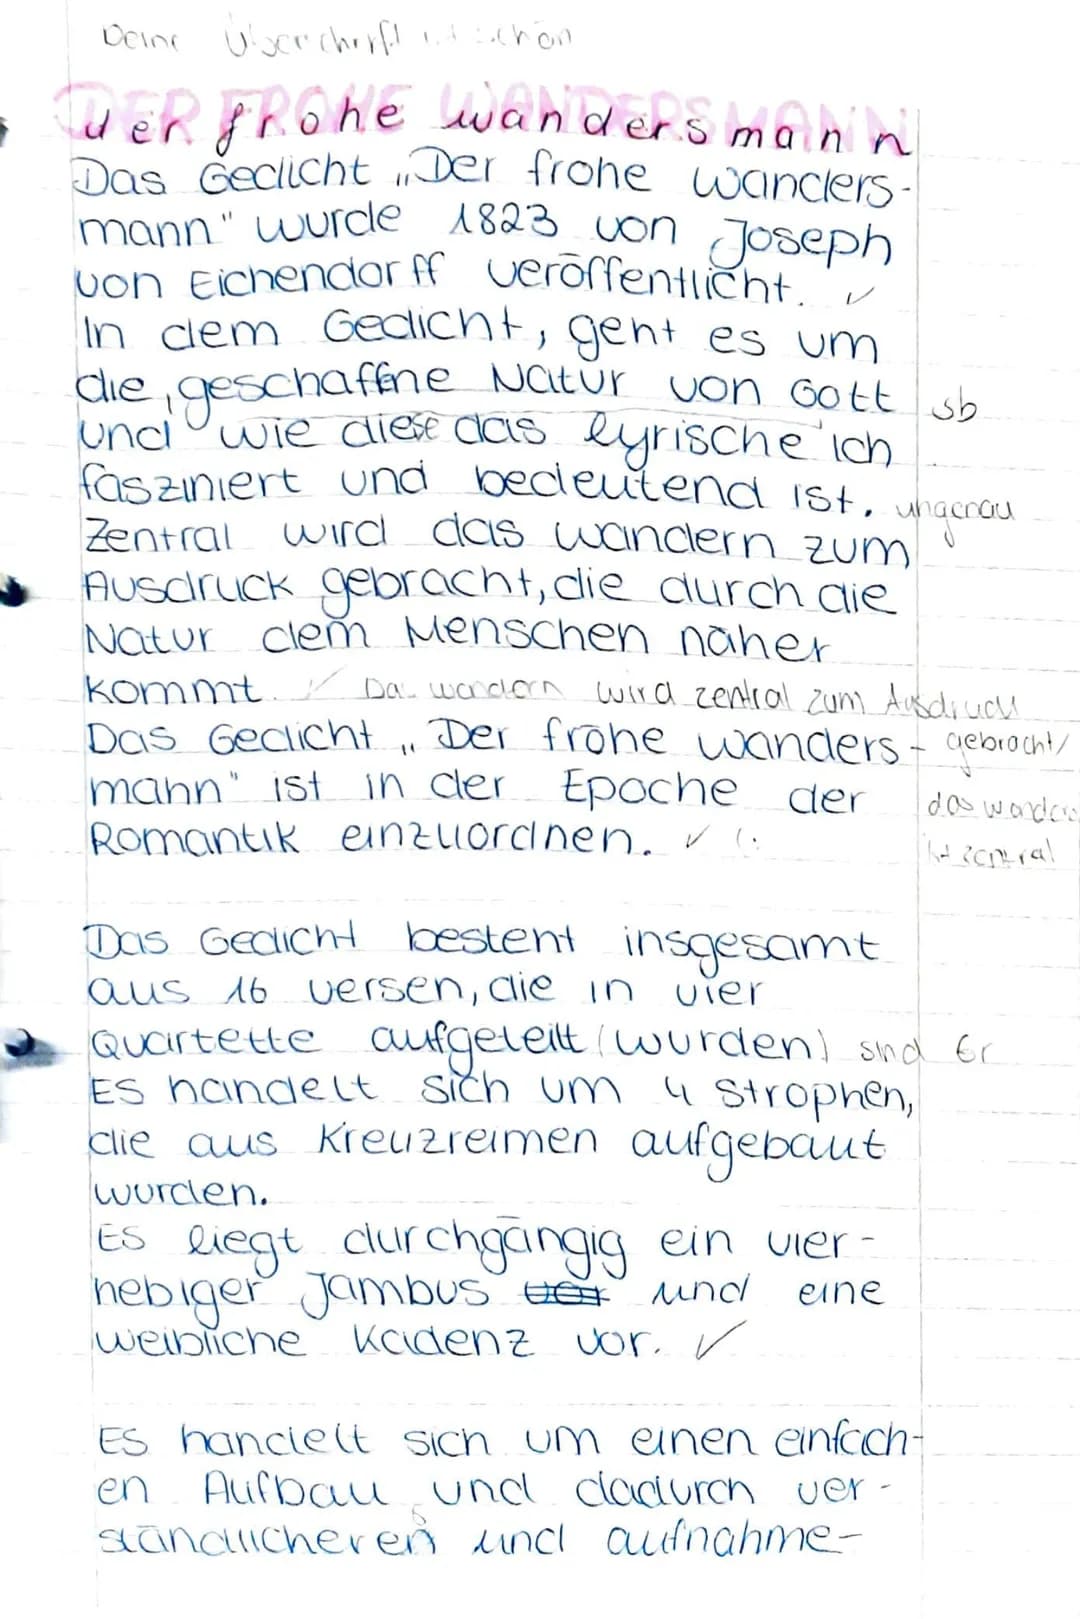 Deine Überschrift ist schön
DER FROHE WANDERSMANN
der frohe wandersmann
Das Gedicht „Der frohe wanders-
mann" wurde 1823 von Joseph
von Eichendorff veröffentlicht. ✓
In dem Gedicht, geht es um
die geschaffene Natur von Gott sb
und wie diese das lyrische ich
fasziniert und bedeutend ist. ungenau
Zentral wird das wandern zum
Ausdruck gebracht, die durch die
Natur dem Menschen näher
kommt. ✓ Das wandern wird zentral zum Ausdruck
Das Gedicht „Der frohe wanders- gebracht/
mann" ist in der Epoche der das wandern
Romantik einzuordnen. ✓ ist zentral
Das Gedicht besteht insgesamt
aus 16 versen, die in vier
Quartette aufgeteilt (wurden) sind Gr
ES handelt sich um 4 Strophen,
die aus Kreuzreimen aufgebaut
wurden.
ES liegt durchgängig ein vier-
hebiger Jambus und eine
weibliche Kadenz vor. ✓
ES handelt sich um einen einfach-
en Aufbau und dadurch ver-
ständlicheren und aufnahme-